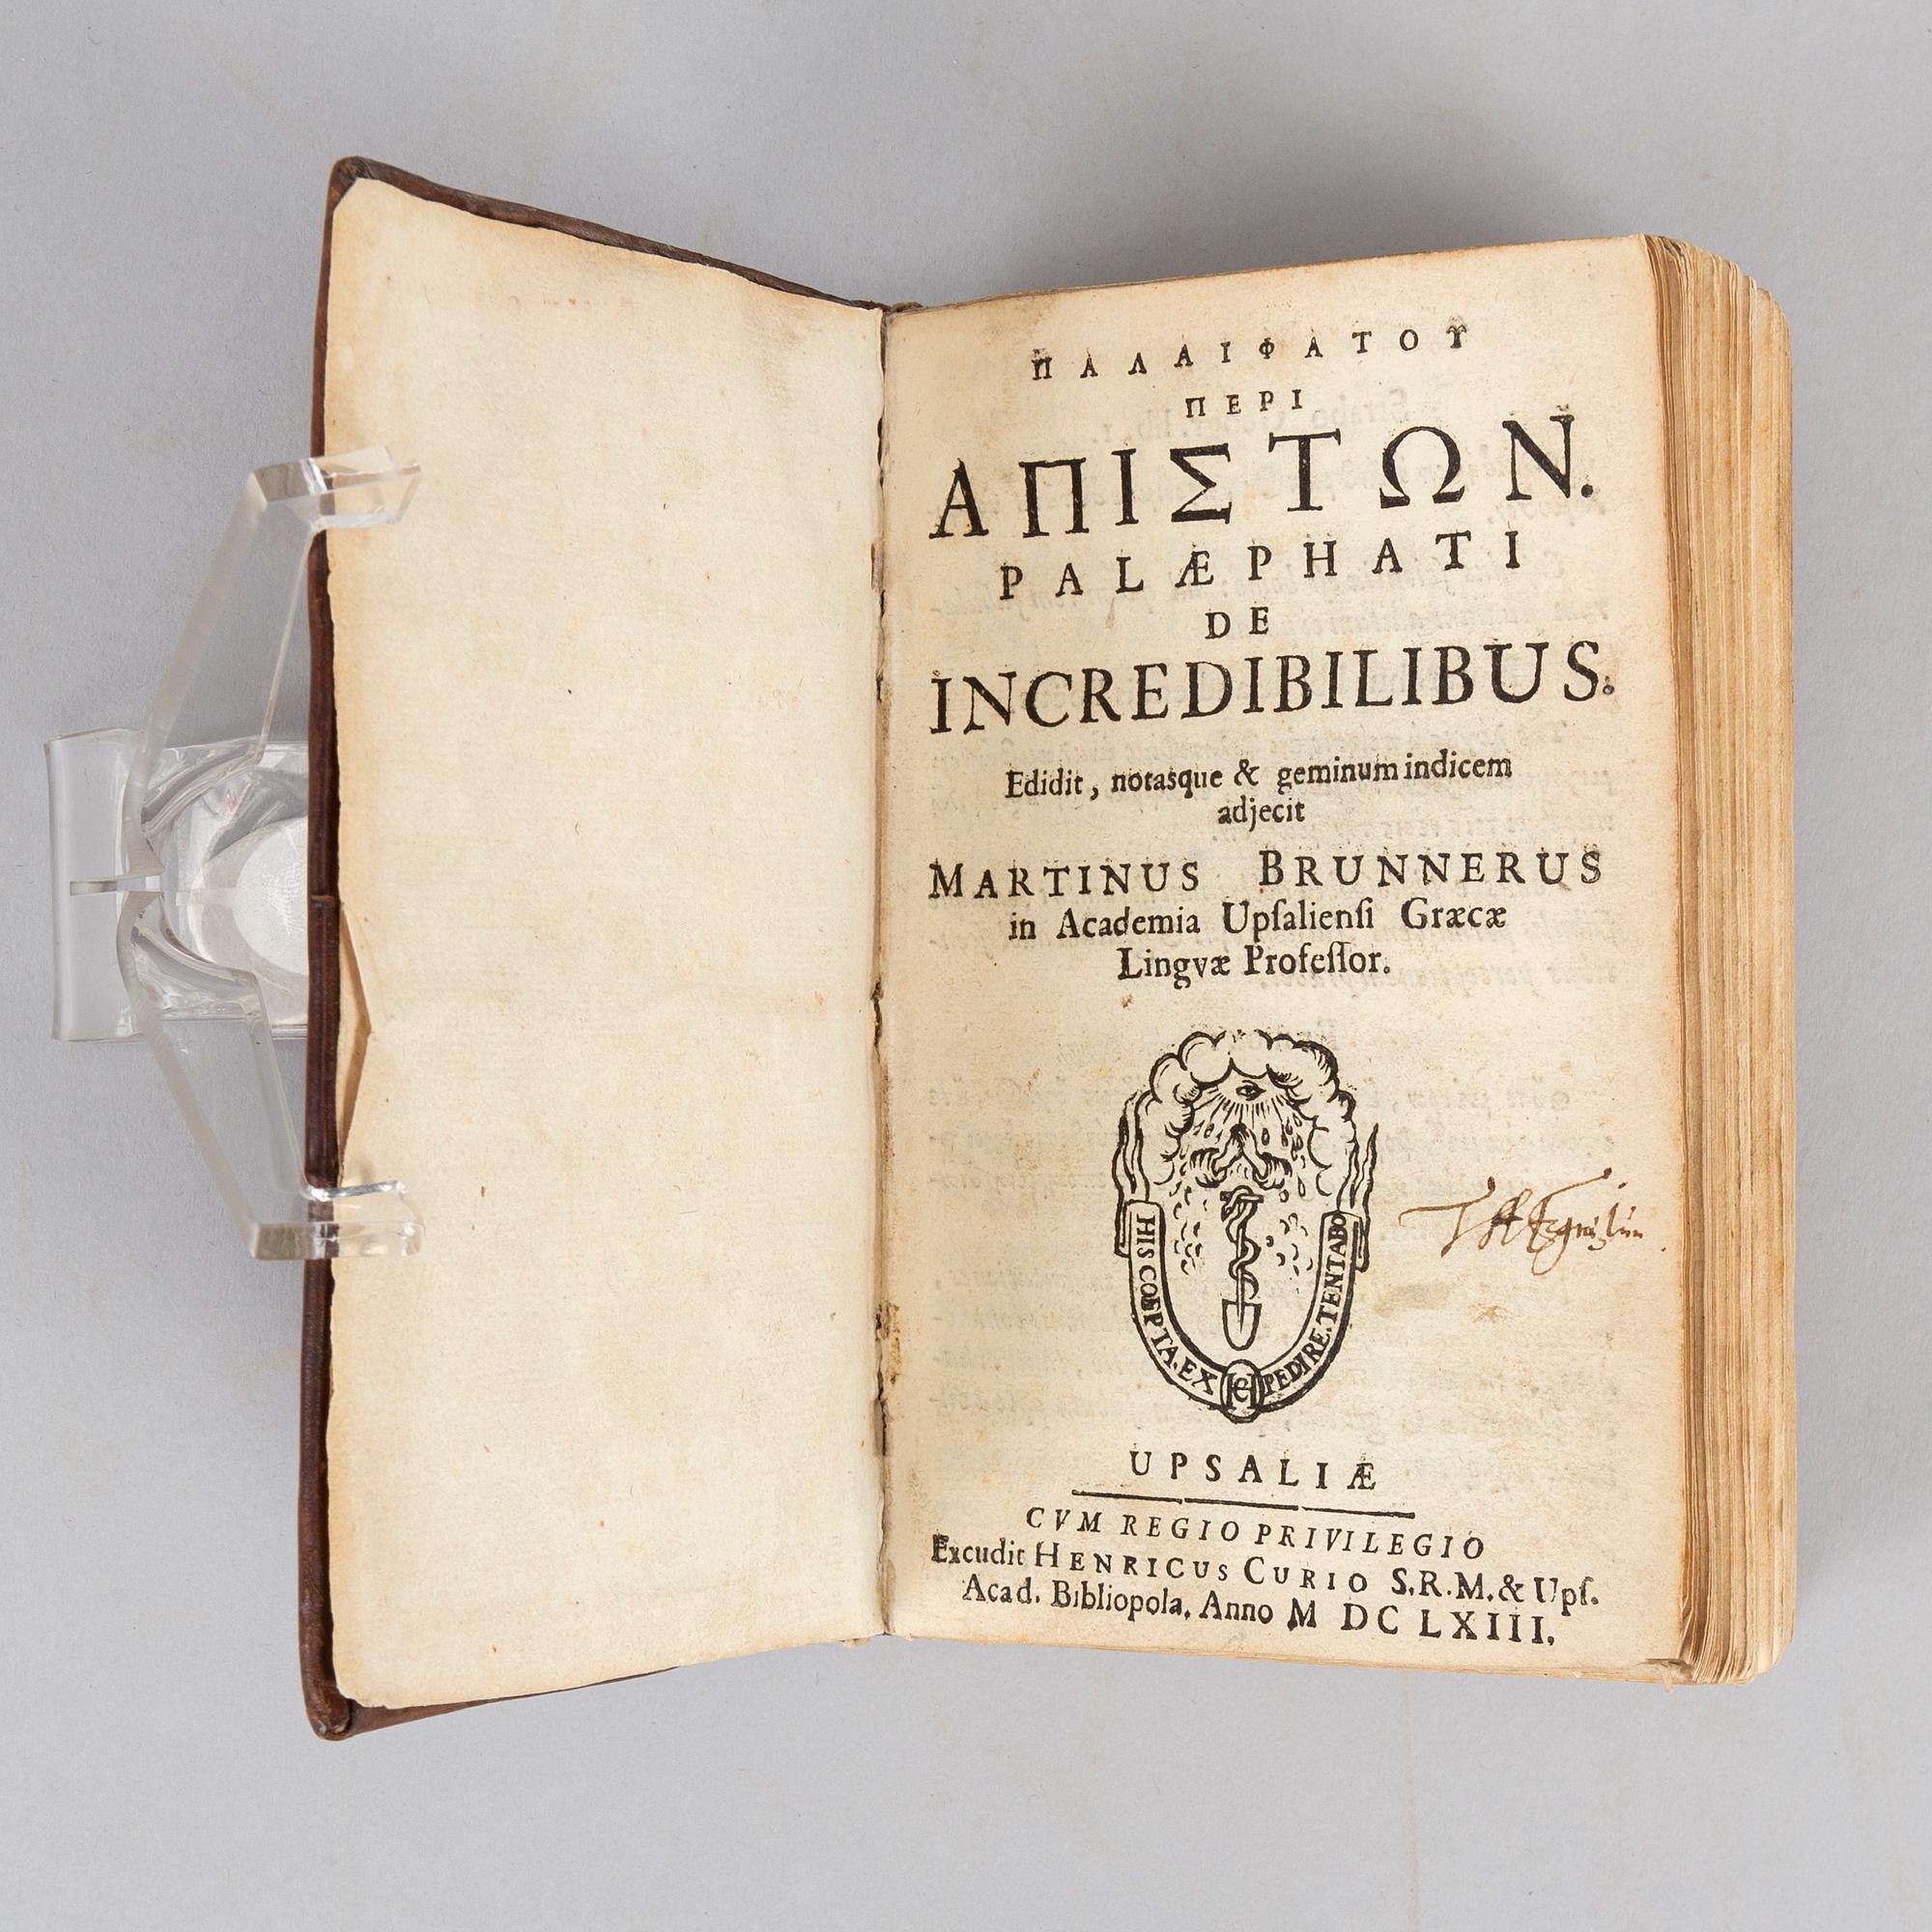 ΠΑΛΑΙΦΑΤΟΥ
ΠΕΡΙ
ΑΠΙΣΤΩΝ.
PALÆPHATI
DE
INCREDIBILIBUS.
Edidit, notasque & geminum indicem
adjecit
MARTINUS BRUNNERUS
in Academia Upſalienſi Græcæ
Lingvæ Profeſſor.
HIS COEPTA. EX PEDIRE. TENTABO
UPSALIÆ
CVM REGIO PRIVILEGIO
Excudit HENRICUS CURIO S.R.M. & Upſ.
Acad. Bibliopola, Anno M DC LXIII.